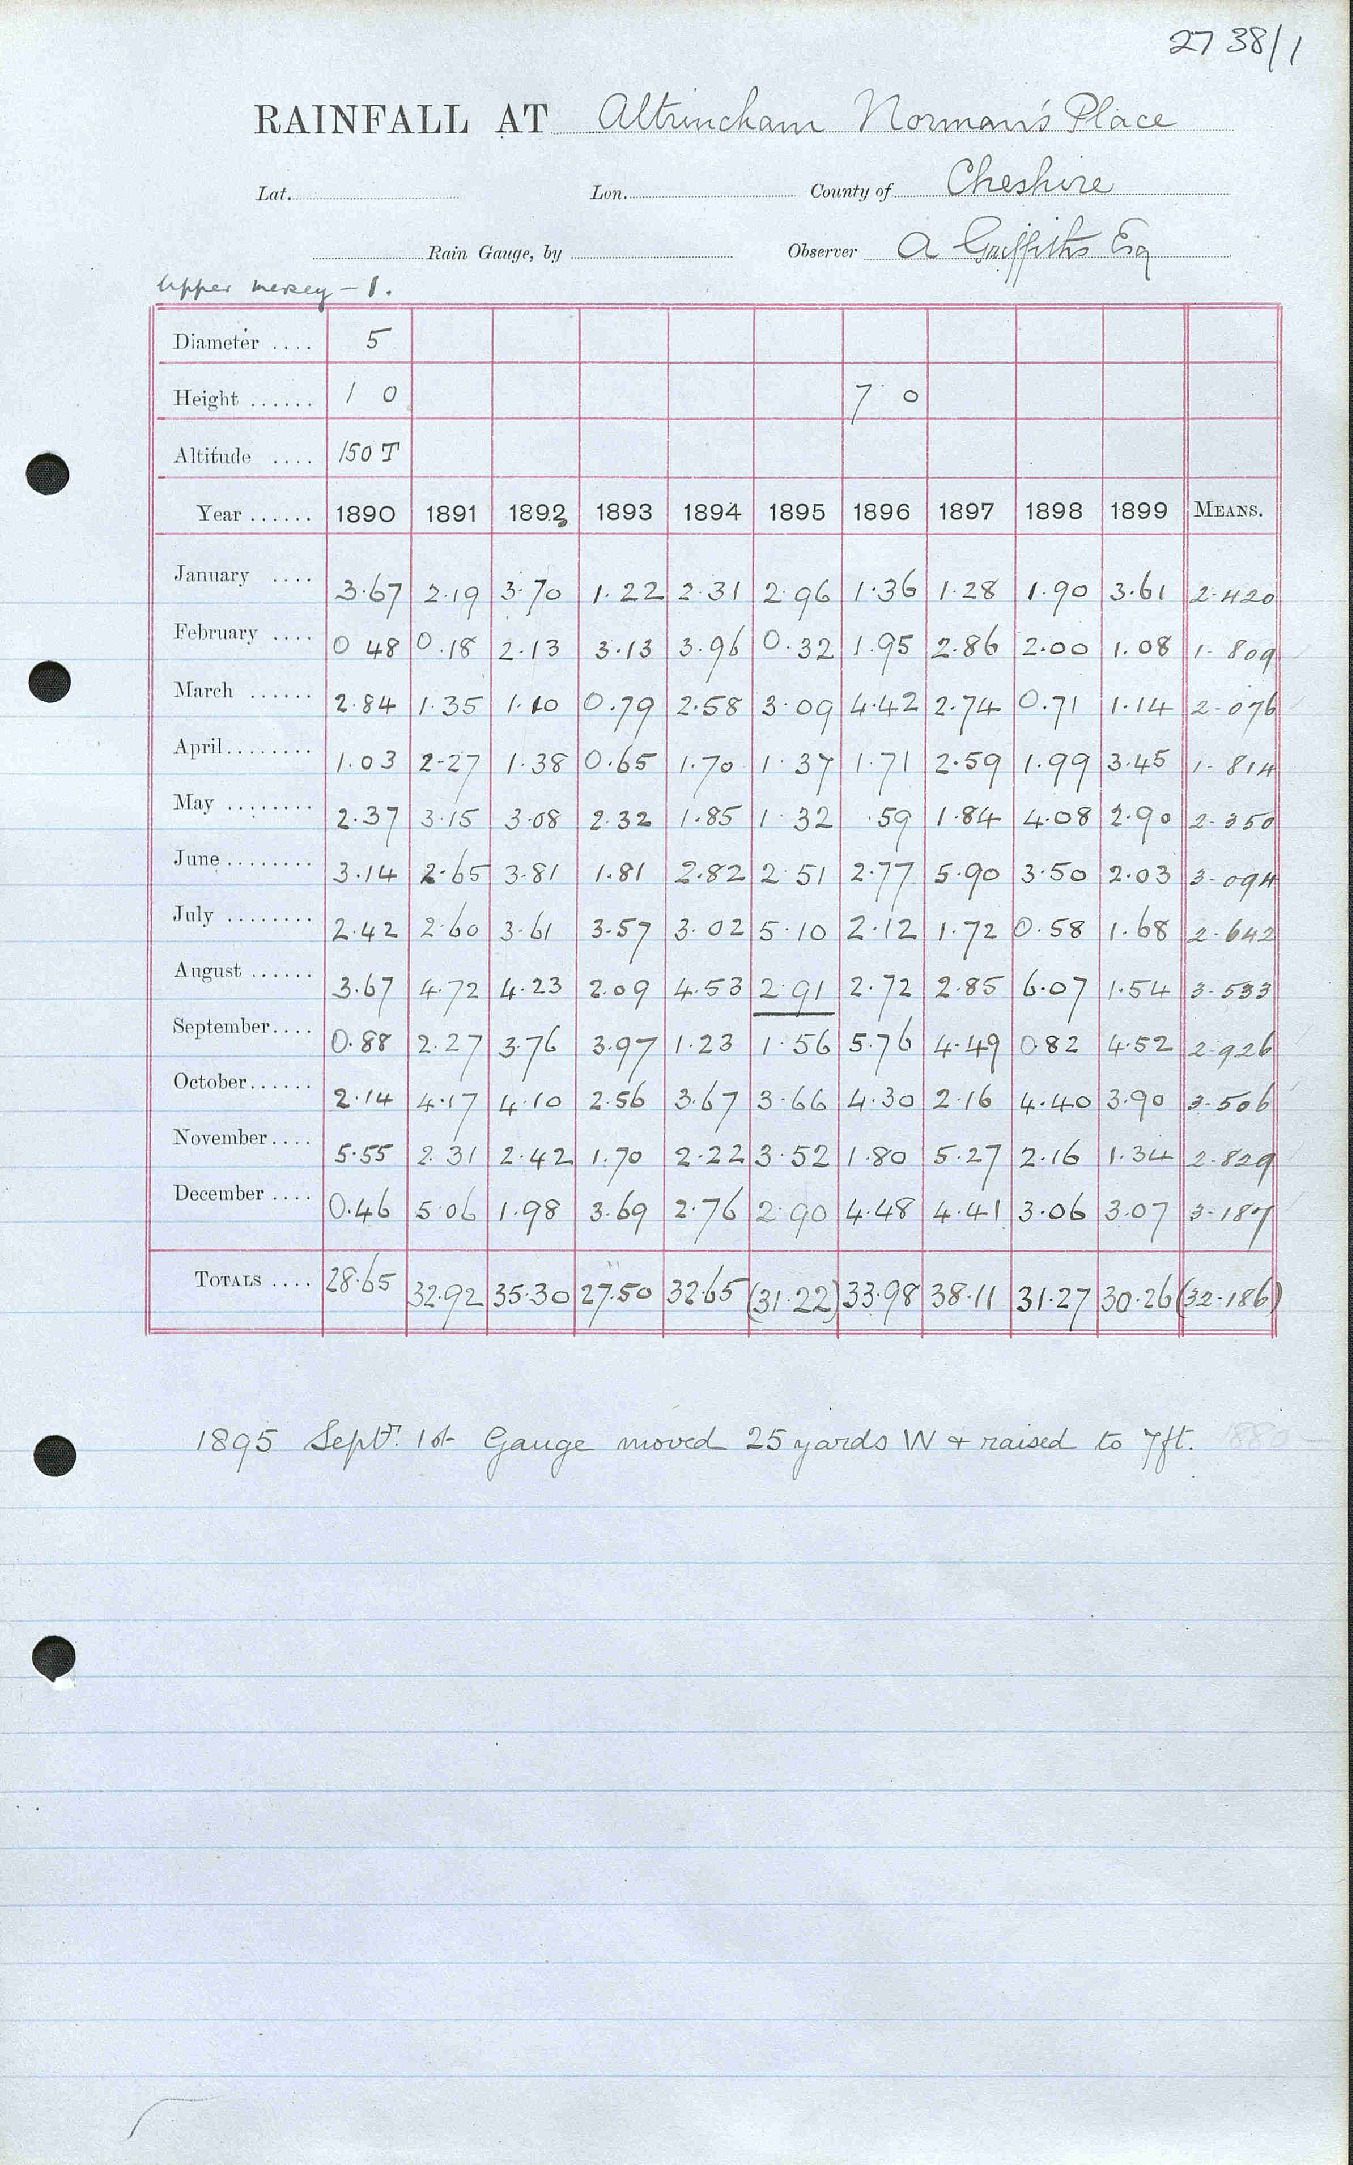 27 38/1
RAINFALL AT Altrincham Norman's Place
Lat. Lon. County of Cheshire
Rain Gauge, by Observer A Griffiths Esq
Upper Mersey - 1.
Diameter .... 5
Height ...... 1 0 7 0
Altitude .... 150 T
Year ...... 1890 1891 1892 1893 1894 1895 1896 1897 1898 1899 MEANS.
January .... 3.67 2.19 3.70 1.22 2.31 2.96 1.36 1.28 1.90 3.61 2.420
February .... 0 48 0.18 2.13 3.13 3.96 0.32 1.95 2.86 2.00 1.08 1.809
March ...... 2.84 1.35 1.10 0.79 2.58 3.09 4.42 2.74 0.71 1.14 2.076
April........ 1.03 2.27 1.38 0.65 1.70 1.37 1.71 2.59 1.99 3.45 1.814
May ........ 2.37 3.15 3.08 2.32 1.85 1.32 .59 1.84 4.08 2.90 2.350
June ........ 3.14 2.65 3.81 1.81 2.82 2.51 2.77 5.90 3.50 2.03 3.094
July ........ 2.42 2.60 3.61 3.57 3.02 5.10 2.12 1.72 0.58 1.68 2.642
August ...... 3.67 4.72 4.23 2.09 4.53 2.91 2.72 2.85 6.07 1.54 3.533
September.... 0.88 2.27 3.76 3.97 1.23 1.56 5.76 4.49 0.82 4.52 2.926
October...... 2.14 4.17 4.10 2.56 3.67 3.66 4.30 2.16 4.40 3.90 3.506
November.... 5.55 2.31 2.42 1.70 2.22 3.52 1.80 5.27 2.16 1.34 2.829
December .... 0.46 5.06 1.98 3.69 2.76 2.90 4.48 4.41 3.06 3.07 3.187
TOTALS .... 28.65 32.92 35.30 27.50 32.65 (31.22) 33.98 38.11 31.27 30.26 (32.186)
1895 Sept. 1st Gauge moved 25 yards W & raised to 7ft.